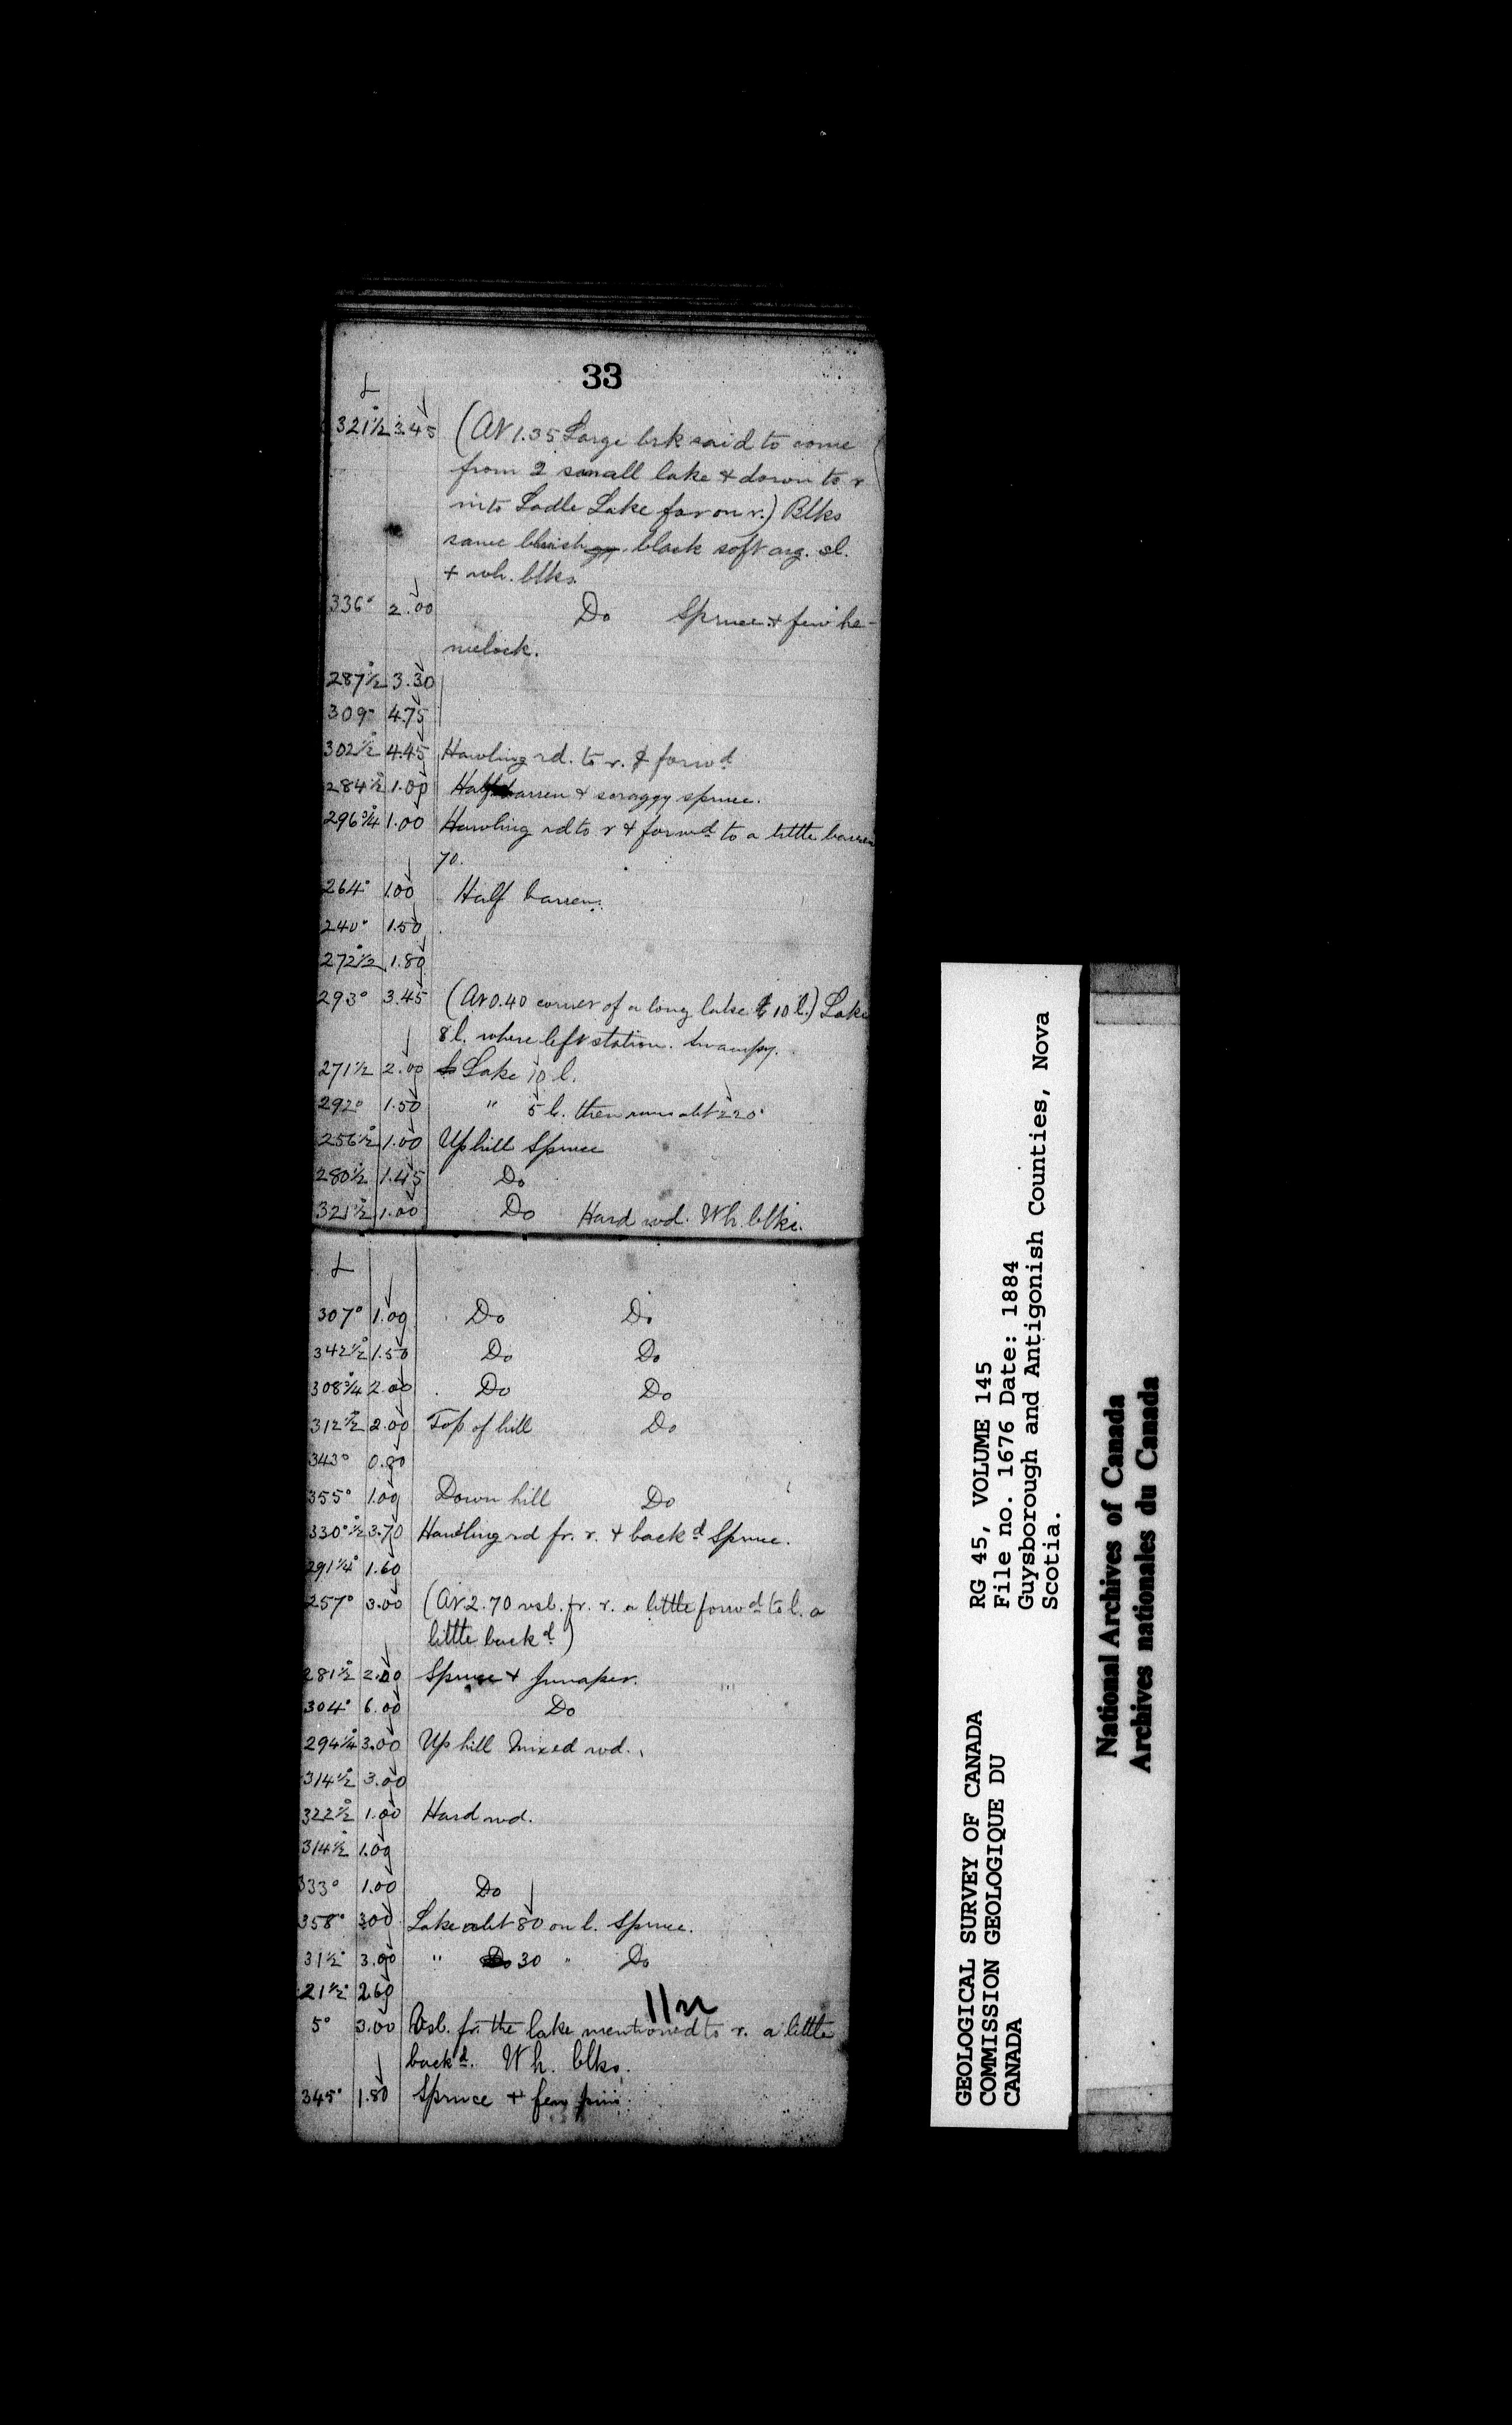 33
L
321½° 3.45 (At 1.35 Large brk said to come
from 2 small lake & down to r
into Ladle Lake far on r.) Blks
same bluish black soft arg. sl.
+ wh. blks.
336° 2.00 Do Spruce + few he-
mlock.
287½° 3.30
309° 4.75
302½° 4.45 Hawling rd. to r. & forwd
284½° 1.00 Half barren & scraggy spruce.
296¾° 1.00 Hawling rd to r & forwd to a little barren
70.
264° 1.00 Half barren.
240° 1.50
272½° 1.80
293° 3.45 (At 0.40 corner of a long lake 10 l.) Lake
8 l. where left station. Swampy.
271½° 2.00 Lake 10 l.
292° 1.50 " 5 l. then runs abt 220°
256½° 1.00 Up hill Spruce
280½° 1.45 Do
321½° 1.00 Do Hard wd. Wh. blks.
L
307° 1.00 Do Do
342½° 1.50 Do Do
308¾° 2.00 Do Do
312½° 2.00 Top of hill Do
343° 0.80
355° 1.00 Down hill Do
330½° 3.70 Hawling rd fr. r. & backd Spruce.
291¼° 1.60
257° 3.00 (At 2.70 vsl. fr. r. a little forwd to l. a
little backd)
281½° 2.00 Spruce & Junaper.
304° 6.00 Do
294¼° 3.00 Up hill Mixed wd.
314½° 3.00
322½° 1.00 Hard wd.
314½° 1.00
333° 1.00 Do
358° 3.00 Lake abt 80 on l. Spruce.
31½° 3.00 " 30 " Do
21½° 2.60
5° 3.00 Vsl. fr. the lake mentioned to r. a little
backd. Wh. blks.
345° 1.80 Spruce + few pine.
GEOLOGICAL SURVEY OF CANADA RG 45, VOLUME 145
COMMISSION GEOLOGIQUE DU File no. 1676 Date: 1884
CANADA Guysborough and Antigonish Counties, Nova
Scotia.
National Archives of Canada
Archives nationales du Canada